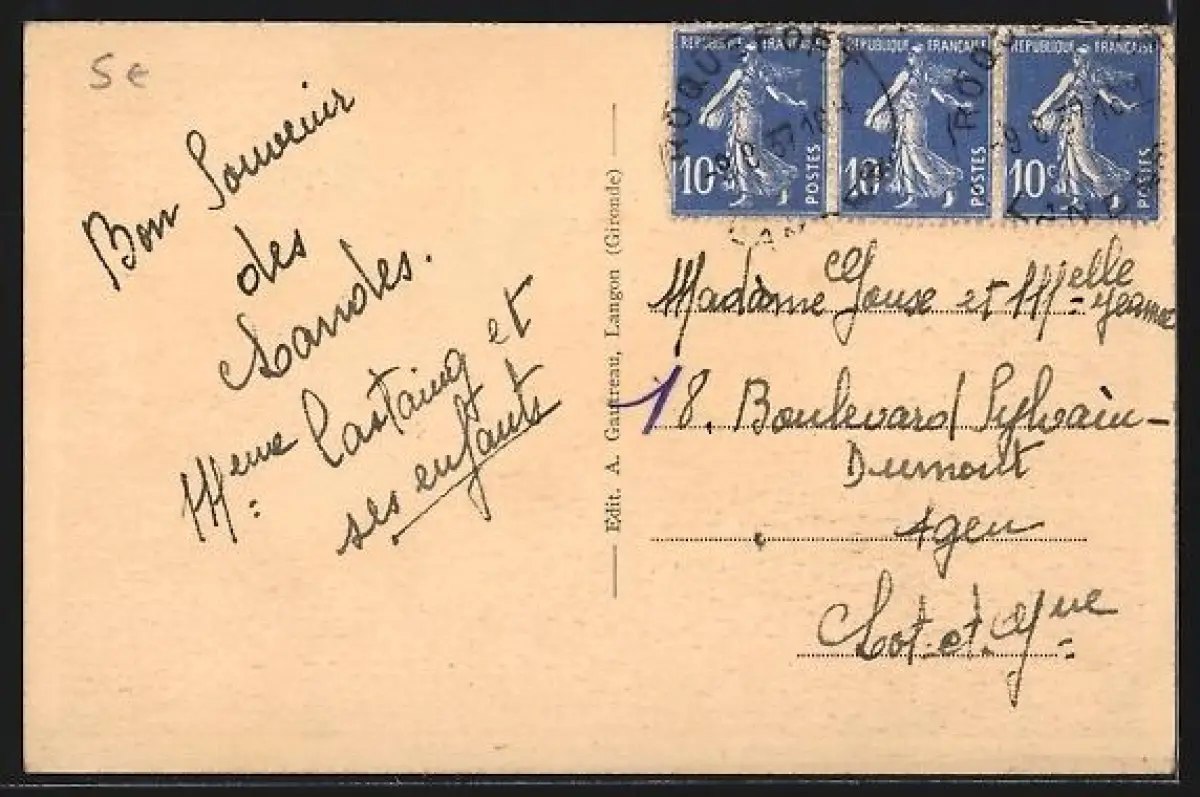 5 €
Bon Souvenir
des
Landes.
Mme Castaing et
ses enfants
Edit. A. Gautreau, Langon (Gironde)
REPUBLIQUE FRANÇAISE
10c
POSTES
REPUBLIQUE FRANÇAISE
10c
POSTES
REPUBLIQUE FRANÇAISE
10c
POSTES
Madame Gouse et Melle Jeanne
18. Boulevard Sylvain-
Dumont
Agen
Lot-et-Gne